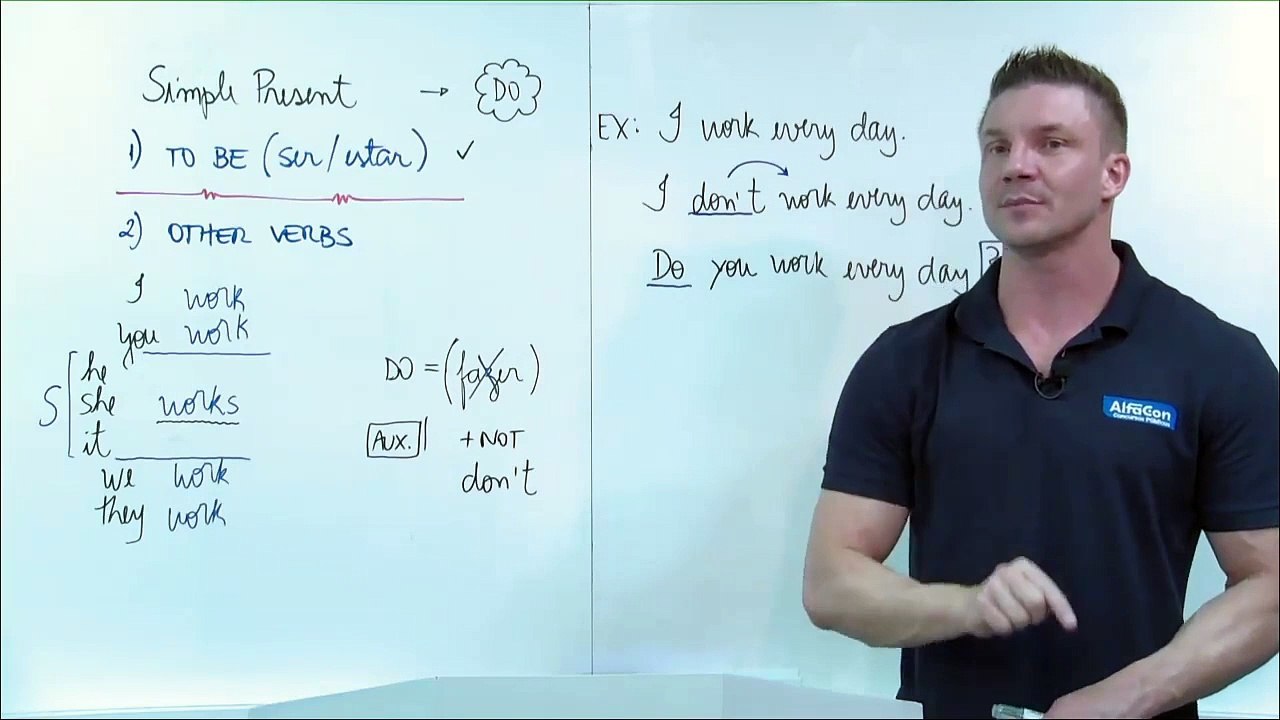 Simple Present → DO
1) TO BE (ser/estar) ✓
2) OTHER VERBS
I work
you work
he
S she works
it
we work
they work
DO = (fazer)
AUX. + NOT
don't
EX: I work every day.
I don't work every day.
Do you work every day ?
AlfaCon
Concursos Públicos